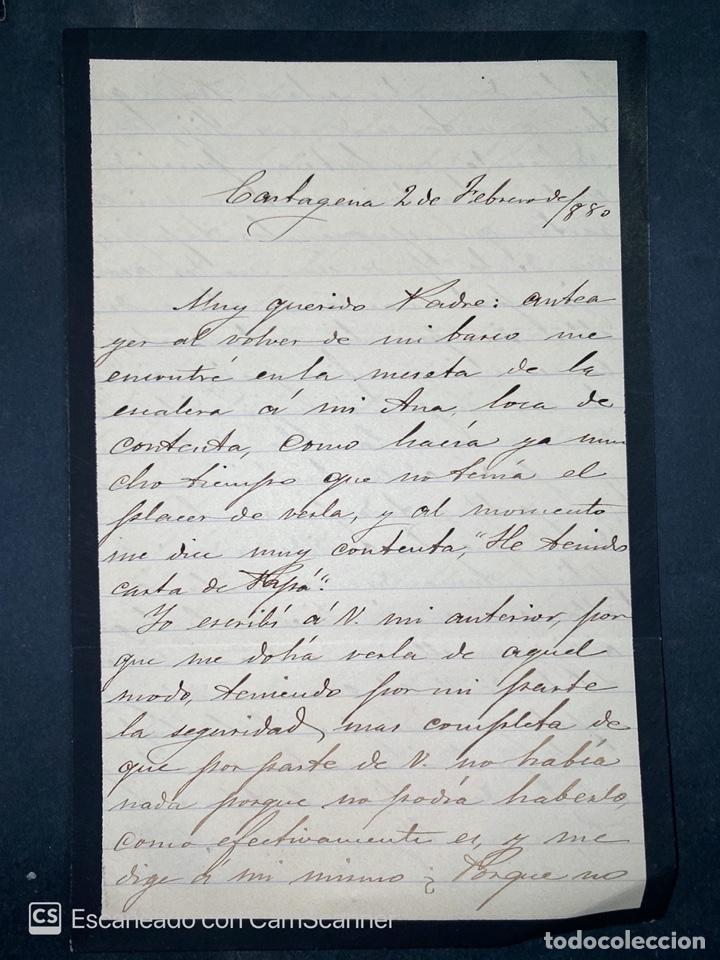 Cartagena 2 de Febrero de /880
Muy querido Padre: antea
yer al volver de mi barco me
encontré en la meseta de la
escalera á mi Ana, loca de
contenta, como hacía ya mu
cho tiempo que no tenía el
placer de verla, y al momento
me dice muy contenta, "He tenido
carta de Papá".
Yo escribí á V. mi anterior, por
que me dolía verla de aquel
modo, teniendo por mi parte
la seguridad mas completa de
que por parte de V. no había
nada porque no podía haberlo,
como efectivamente es, y me
dige á mi mismo ¿ Porque no
CS Escaneado con CamScanner
todocoleccion